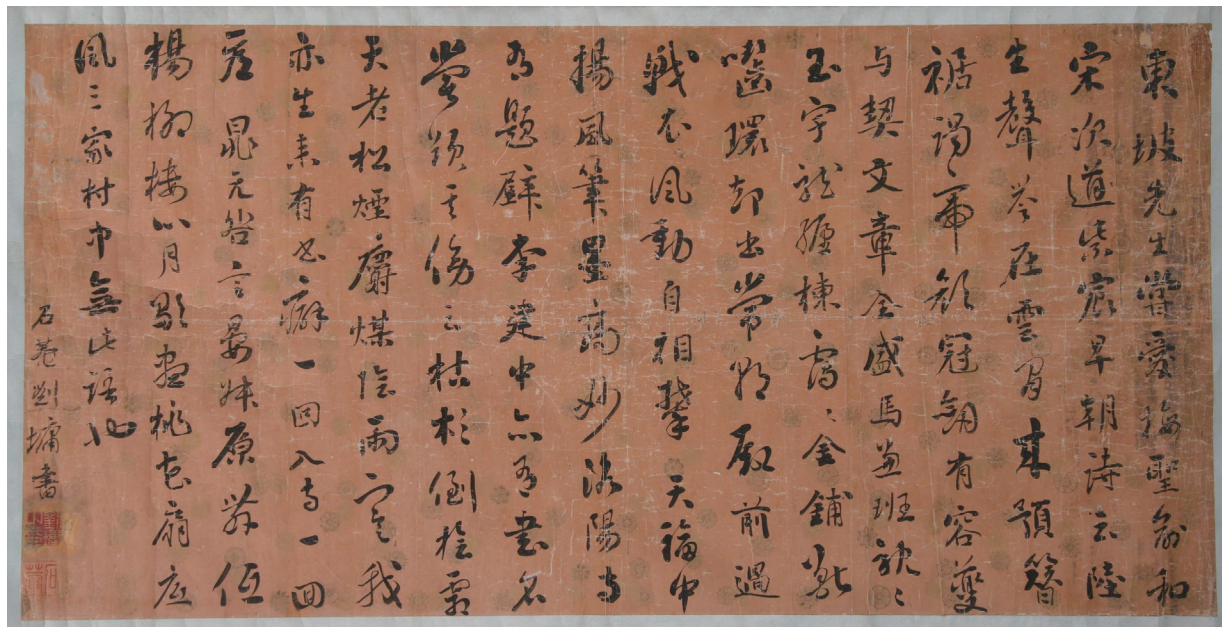 東坡先生嘗愛梅聖俞和
宋次道紫宸早朝詩云陸
生聲譽在雲間來預簪
裾謁帝顏冠劍有容夔
与契文章全盛馬兼班耽〻
玉宇龍纏棟靄〻金鋪獸
嚙環却出常朝殿前過
戟衣風動自相攀天福中
揚風筆墨高妙洛陽寺
多題壁李建中亦書名
嘗題其傍云枯杉倒桧霜
天老松煙麝煤陰雨寒我
亦生來有书癖一回入寺一回
看晁元咎言晏叔原舞低
楊柳樓心月歌盡桃花扇底
風三家村中無此語也
石菴劉墉書